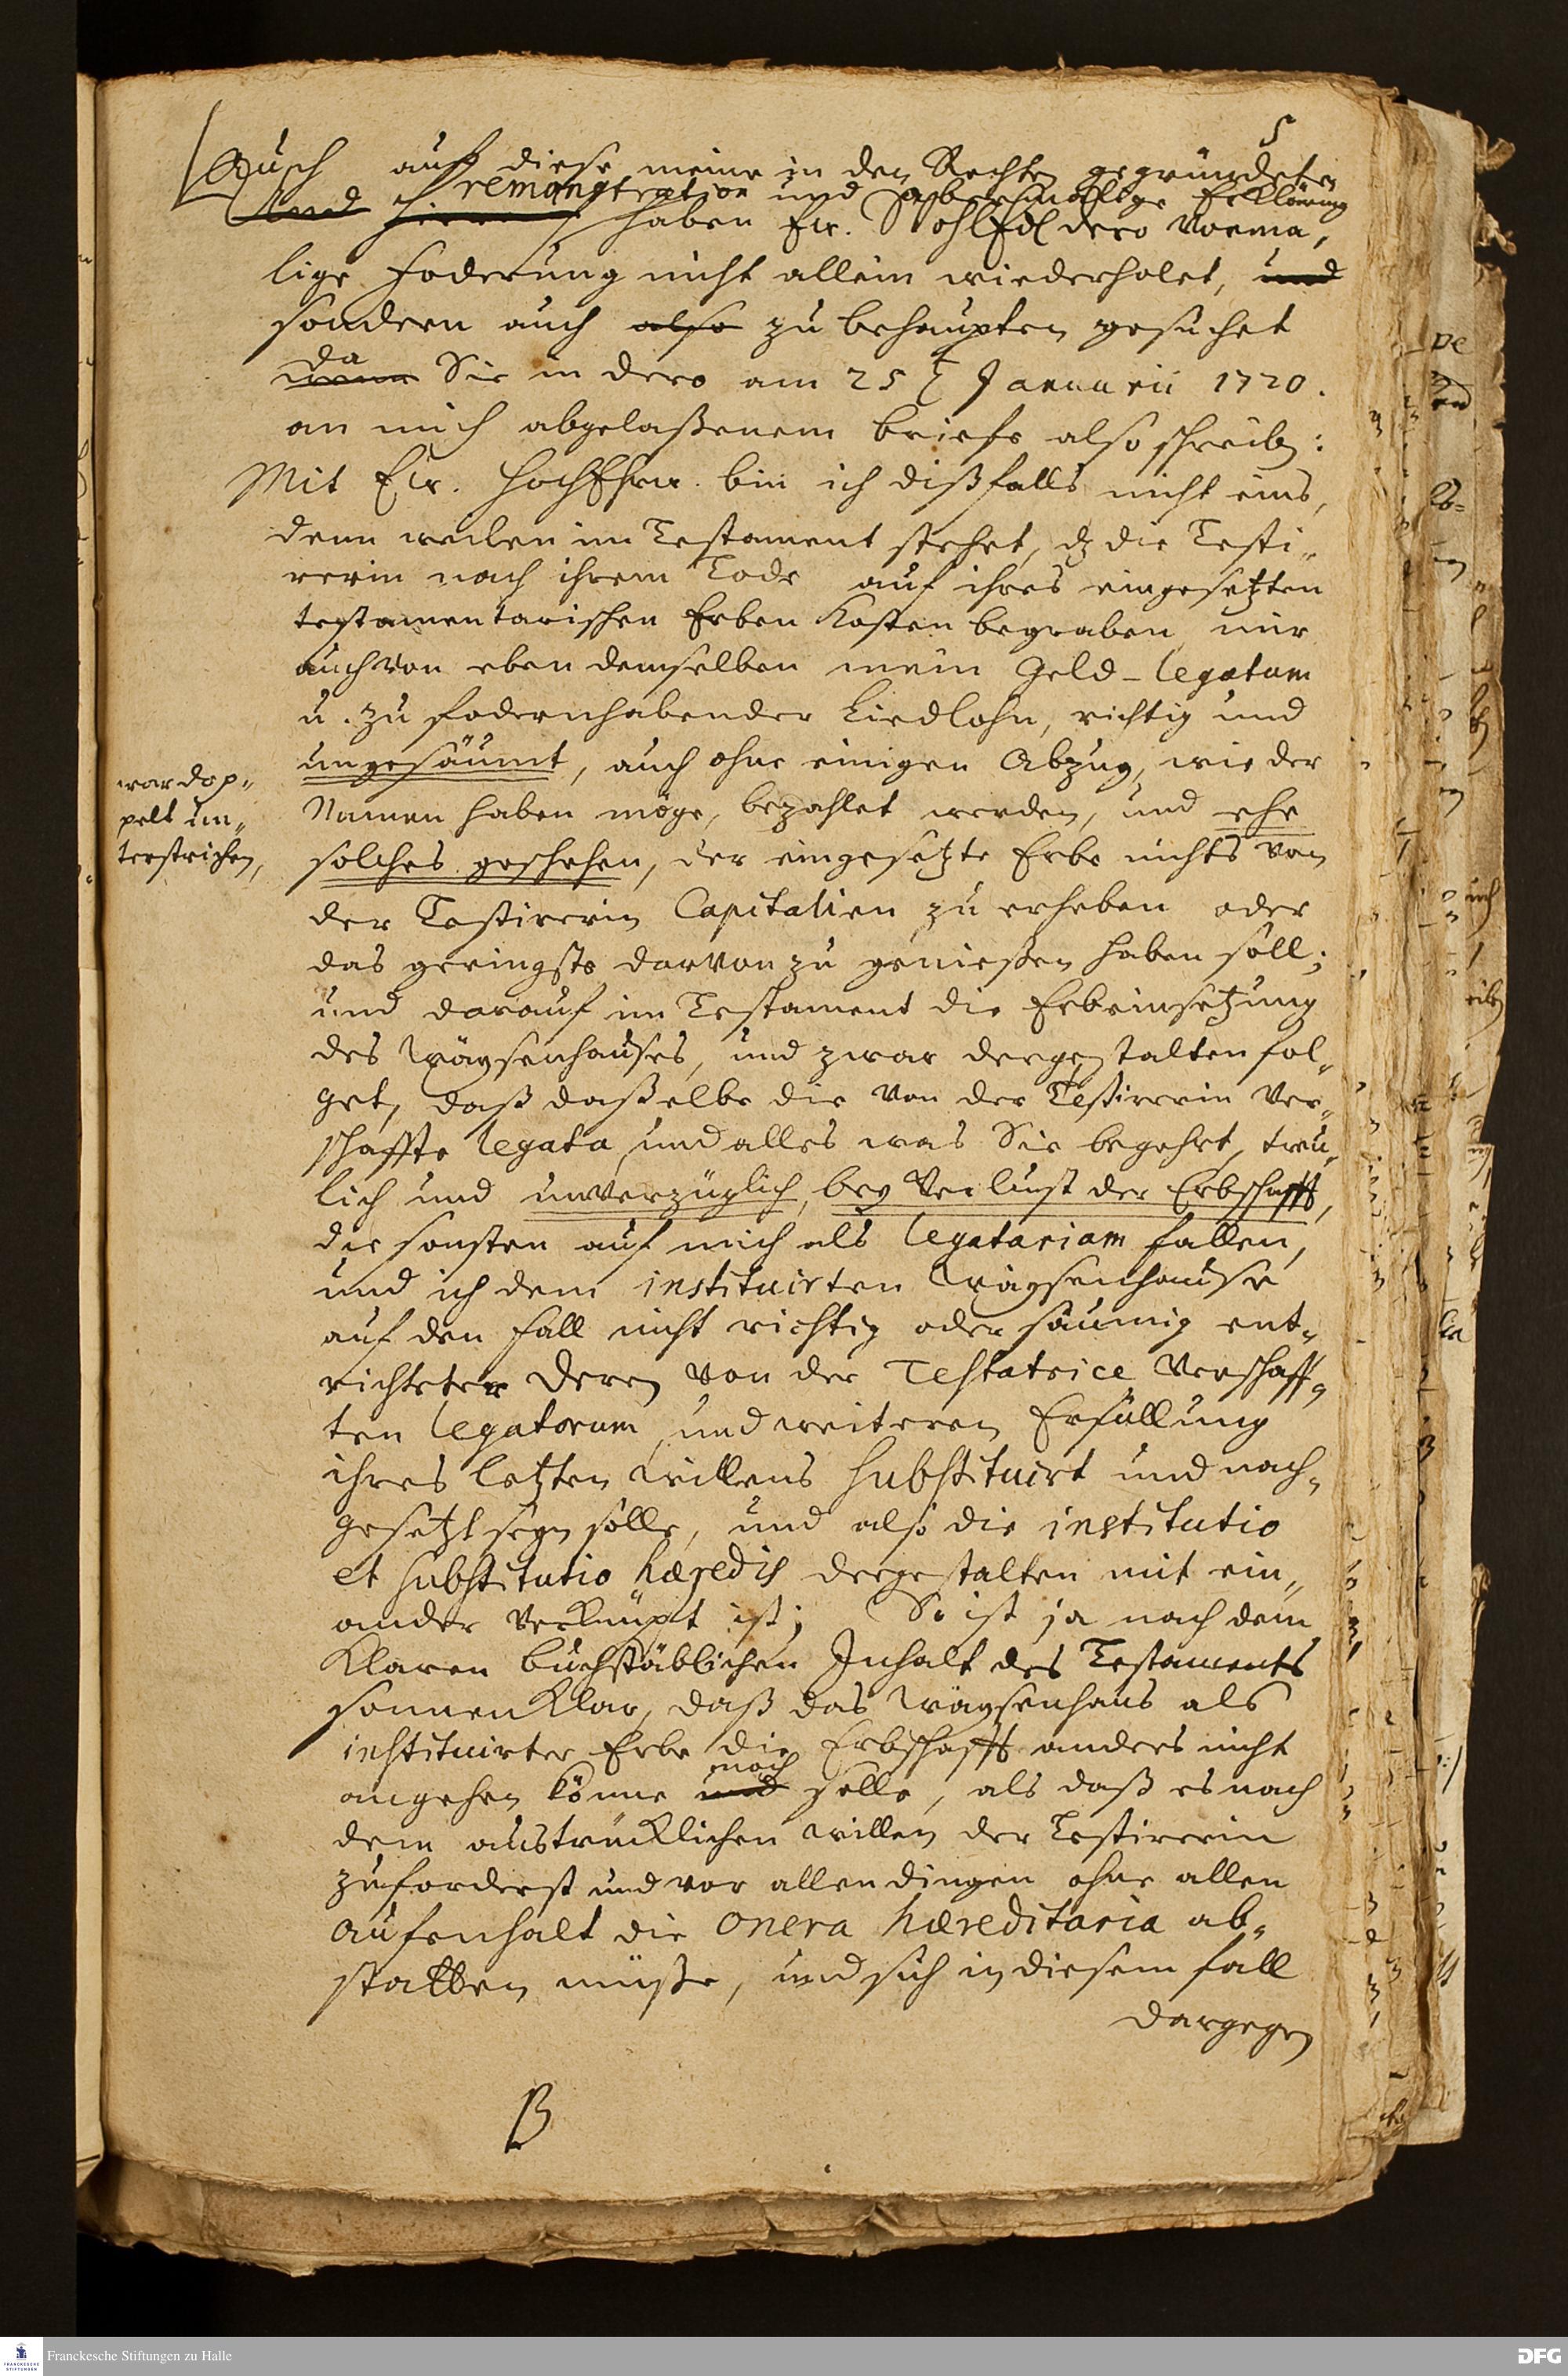 5
Auch auf diese meine in den Rechten gegründeten
remonstration und abermahlige Erklärung
Und haben Ew. WohlEdl dero vorma-
lige foderung nicht allein wiederholet, und
sondern auch also zu behaupten gesuchet
da
wenn Sie in dero am 25 t Januarii 1720.
an mich abgelaßenem briefe also schreiben:
Mit Ew. HochEhrw. bin ich dißfalls nicht eins,
denn weilen im Testament stehet, dz die Testi-
rerin nach ihrem Tode auf ihres eingesetzten
testamentarischen Erben Kosten begraben, mir
auch von eben demselben mein Geld-legatum
u. zu fodern habender Liedlohn, richtig und
ungesäumt, auch ohne einigen Abzug, wie der
Namen haben möge, bezahlet werden, und ehe
solches geschehen, der eingesetzte Erbe nichts von
war dop-
pelt un-
terstrichen,
der Testirerin Capitalien zu erheben oder
das geringste darvon zu genießen haben soll;
und darauf im Testament die Erbeinsetzung
des Wäysenhauses, und zwar dergestalten fol-
get, daß daßelbe die von der Testirerin ver-
schaffte legata, und alles was Sie begehrt, treu-
lich und unverzüglich, bey Verlust der Erbschafft,
die sonsten auf mich als legatariam fallen,
und ich dem instituirten Wäysenhause
auf den fall nicht richtig oder säumig ent-
richteter deren von der Testatrice verschaff-
ten legatorum, und weiteren Erfüllung
ihres letzten willens substituirt und nach-
gesetzt seyn solle, und also die institutio
et substitutio hæredis dergestalten mit ein-
ander verknüpft ist; So ist ja nach dem
Klaren buchstäblichen Inhalt des Testaments
sonnenklar, daß das Wäysenhaus als
instituirter Erbe die Erbschafft anders nicht
noch
angehen könne und solle, als daß es nach
dem austrücklichen willen der Testirerin
zuforderst und vor allen dingen ohne allen
Aufenhalt die onera hæreditaria ab-
statten müße, und sich in diesem fall
dargegen
B
Franckesche Stiftungen zu Halle
DFG